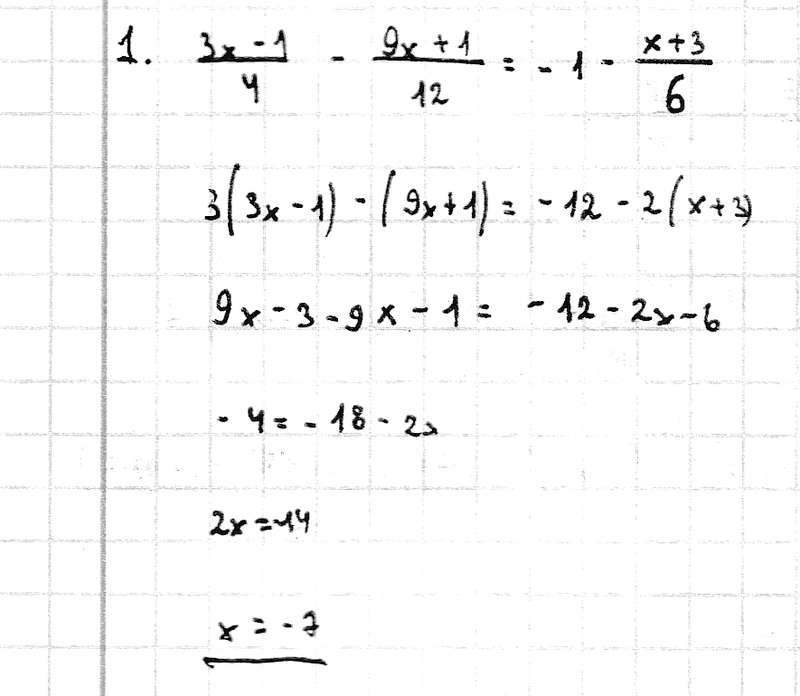 1. (3x - 1)/4 - (9x + 1)/12 = - 1 - (x + 3)/6
3(3x - 1) - (9x + 1) = - 12 - 2(x + 3)
9x - 3 - 9x - 1 = - 12 - 2x - 6
- 4 = - 18 - 2x
2x = -14
x = - 7